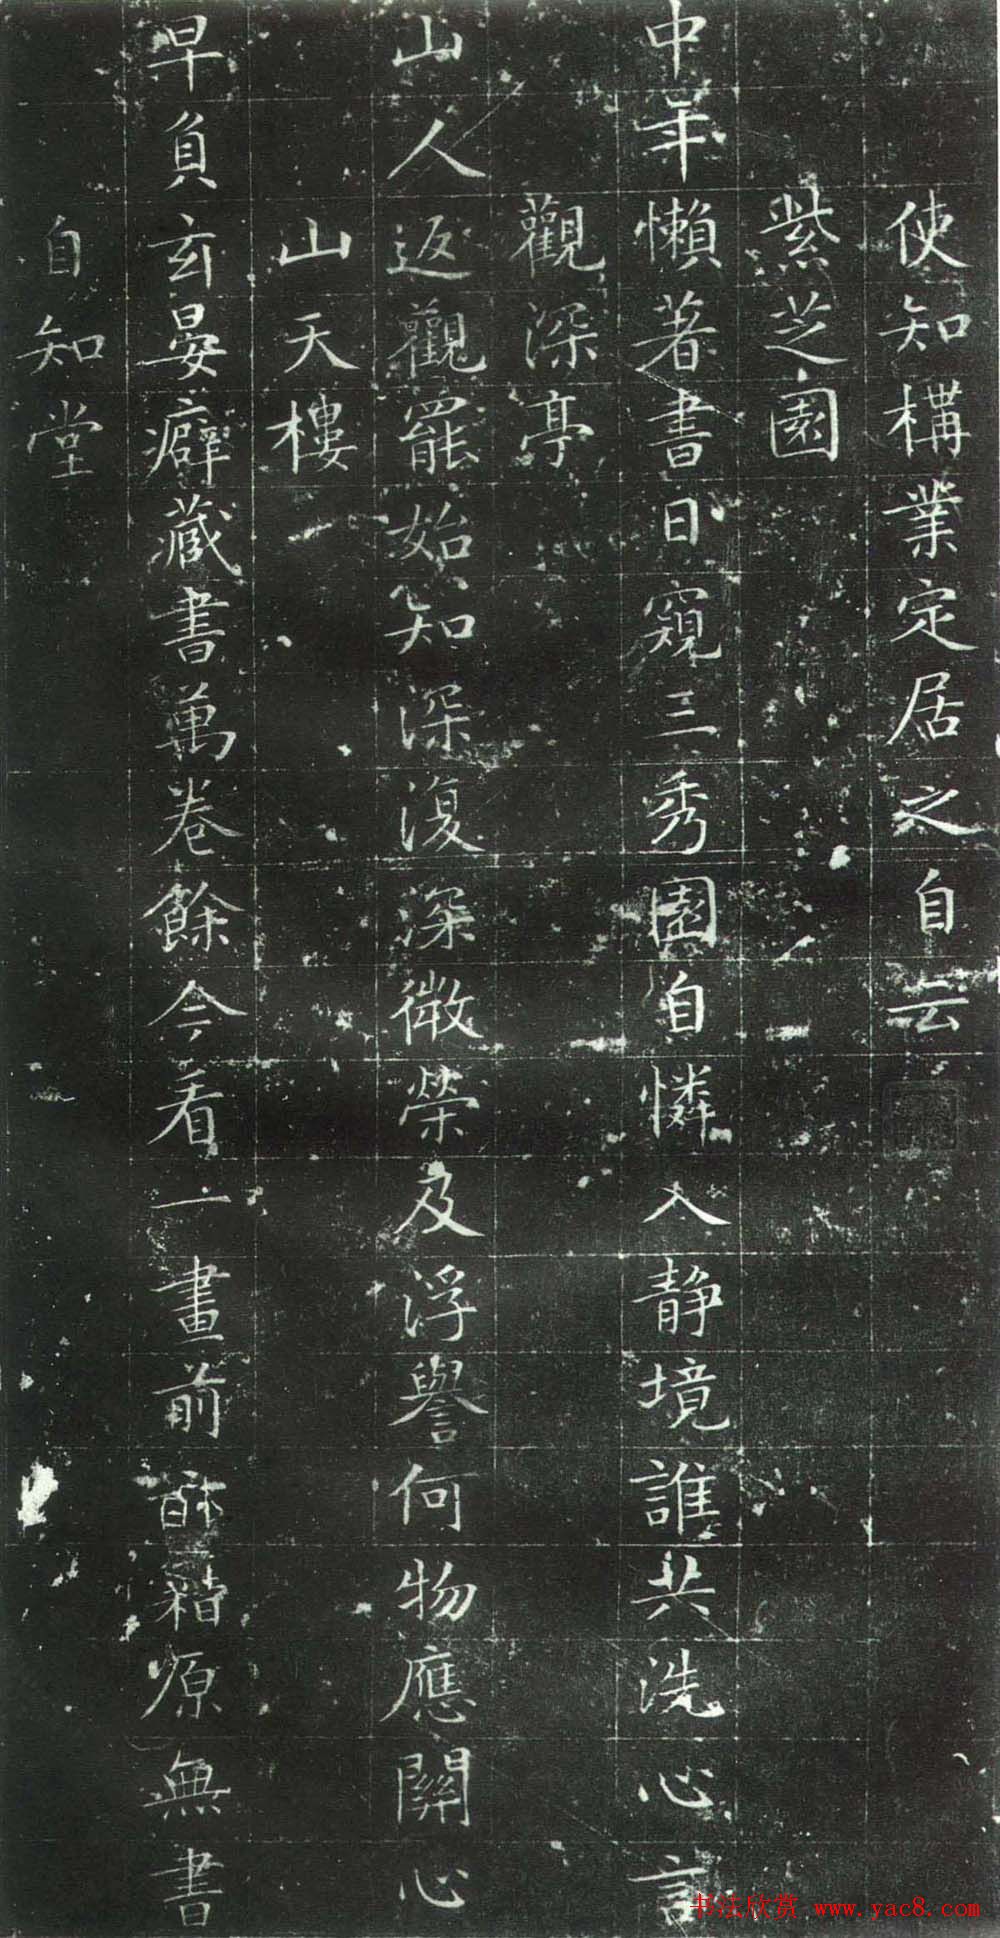 使知構業定居之自云
紫芝園
中年懶著書日窺三秀園自憐入靜境誰共洗心言
觀深亭
山人返觀罷始知深復深微榮及浮譽何物應關心
山天樓
早負玄晏癖藏書萬卷餘今看一畫前祕籍原無書
自知堂
书法欣赏 www.yac8.com